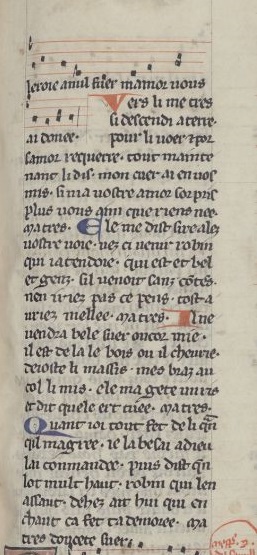 leroie a nul fuer mamor uous
Vers li me tres
si descendi a terre.
ai donee. pour li uoer ⁊ por
samor requerre. tout mainte
nant li dis. mon cuer ai en uos
mis. si ma uostre amor sorpris
plus uous aim que riens nee.
ma tres. Ele me dist sire alez
uostre uoie. uez ci uenir robin
qui iatendoie. qui est et bel
et genz. sil uenoit sanz contens.
nen iriez pas ce pens. tost a
uriez mellee. ma tres. Il ne
uendra bele suer oncor mie.
il est de la le bois ou il cheurie.
deioste li massis. mes braz au
col li mis. ele ma gete un ris
et dit quele ert tuee. ma tres.
Quant ioi tout fet de li qan
qil magree. ie la besai a dieu
lai conmandee. puis dist qen
lot mult haut. robin qui len
assaut. dehez ait hui qui en
chaut ca fet ta demoree. ma
tres doucete suer.